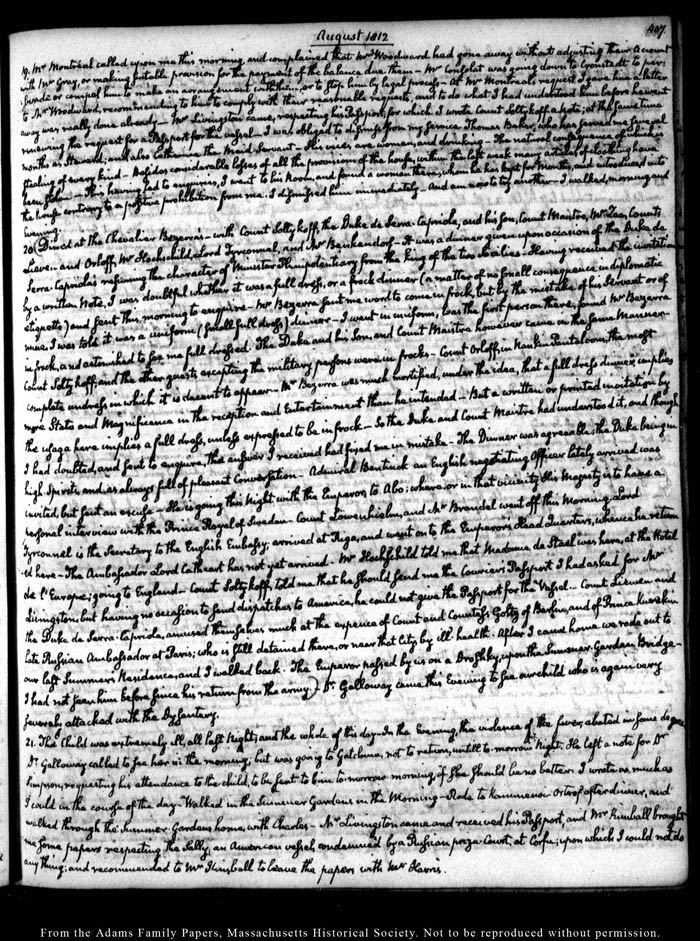 August 1812
407.
19. Mr Montréal called upon me this morning, and complained that Mr Woodward had gone away without adjusting their account
with Mr Gray, or making suitable provision for the payment of the balance due them — Mr Confolat was going down to Cronstadt to per-
suade or compel him to make an arrangement with them, or to stop him by legal process — At Mr Montreal's request I gave him a letter
to Mr Woodward, recommending to him to comply with their reasonable requests, and to do what I had understood him before he went
away was really done already — Mr Livingston came, respecting his Passport, for which I wrote Count Soltykoff a Note; at the same time
renewing the request for a Passport for the vessel — I was obliged to dismiss from my service Thomas Baker, who has served me several
months as Steward; and also Catherine the Maid-Servant — His vices are women, and drinking — The natural consequence of which is
stealing of every kind — Besides considerable losses of all the provisions of the house, within the last week many articles of clothing have
been stolen — This having led to enquiries, I went to his Room, and found a woman there, whom he has kept for months, and introduced into
the house contrary to a positive prohibition from me. I dismissed him immediately — And am now to try another — I walked, morning and
evening.
20. Dined at the Chevalier Bezerra's — with Count Soltykoff, the Duke de Serra-Capriola, and his Son, Count Maistre, Mr Zea, Counts
Lieven and Orloff, Mr Hochschild, Lord Tyrconnel, and Mr Benkendorf — It was a dinner given upon occasion of the Duke de
Serra-Capriola's resuming the character of Minister Plenipotentiary from the King of the two Sicilies — Having received the invitation
by a written Note, I was doubtful whether it was a full dress, or a frock dinner (a matter of no small consequence in diplomatic
etiquette) and sent this morning to enquire — Mr Bezerra sent me word to come in frock, but by the mistake of his Servant or of
mine, I was told it was a uniform (small full dress) dinner — I went in uniform, was the first person there, found Mr Bezerra
in frock, and astonished to see me full dressed. The Duke and his Son, and Count Maistre however came in the same manner —
Count Soltykoff, and the other guests, excepting the military persons were in frocks — Count Orloff, in Nankin Pantaloons, the most
complete undress in which it is decent to appear — Mr Bezerra was much mortified, under the idea, that a full dress dinner, implies
more State and Magnificence in the reception and Entertainment than he intended — But a written or printed invitation by
the usage here implies a full dress, unless expressed to be in frock — So the Duke and Count Maistre had understood it, and though
I had doubted, and sent to enquire, the answer I received had fixed me in mistake — The Dinner was agreeable, the Duke being in
high Spirits, and as always full of pleasant Conversation — Admiral Bentinck an English negotiating Officer lately arrived was
invited, but sent an excuse — He is going this Night with the Emperor, to Abo; where, or in that vicinity His Majesty is to have a
personal interview with the Prince Royal of Sweden — Count Löwenhielm, and Mr Brandel went off this Morning. Lord
Tyrconnell is the Secretary to the English Embassy; arrived at Riga, and went on to the Emperor's Head Quarters, whence he return-
ed here — The Ambassador Lord Cathcart has not yet arrived — Mr Hochschild told me that Madame de Stael was here, at the Hotel
de l'Europe; going to England — Count Soltykoff, told me that he should send me the Courier's Passport I had asked for Mr
Livingston, but having no occasion to send dispatches to America, he could not give the Passport for the Vessel — Count Lieven and
the Duke de Serra-Capriola, amused themselves much at the expence of Count and Countess Goltz of Berlin, and of Prince Kurakin
late Russian Ambassador at Paris; who is still detained there, or near that City by ill health. After I came home we rode out to
our last Summer's Residence, and I walked back. The Emperor passed by us on a Droshky, upon the Summer-Garden Bridge —
I had not seen him before since his return from the army.) Dr Galloway came this Evening to see our child who is again very
severely attacked with the Dysentary.
21. The Child was extremely ill, all last Night, and the whole of this day. In the Evening, the violence of the fever, abated in some degree
Dr Galloway called to see her in the morning, but was going to Gatchina, not to return, untill to-morrow Night. He left a note for Dr
Simpson, requesting his attendance to the child, to be sent to him to-morrow morning, if She should be no better. I wrote as much as
I could in the course of the day — Walked in the Summer Gardens in the Morning — Rode to Kammenoi-Ostrof after dinner, and
walked through the Summer-Gardens home, with Charles — Mr Livingston came and received his Passport, and Mr Kimball brought
me some papers respecting the Sally, an American vessel, condemned by a Russian prize-Court, at Corfu; upon which I could not do
any thing; and recommended to Mr Kimball to leave the papers with Mr Harris.
From the Adams Family Papers, Massachusetts Historical Society. Not to be reproduced without permission.